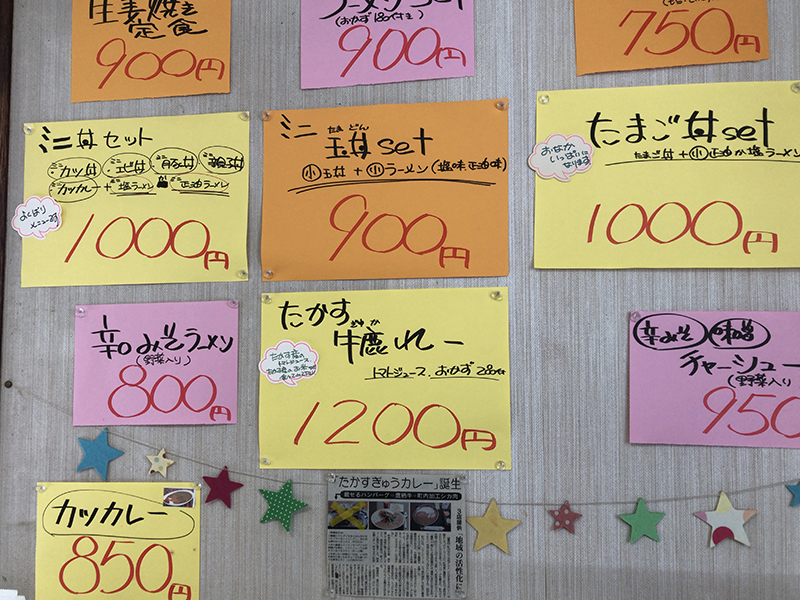 生姜焼き
定食
900円
ラーメンset
(おかず1品付き)
900円
750円
ミニ丼セット
カツ丼 エビ丼 豚丼 親子丼
カツカレー + 塩ラーメン か 正油ラーメン
よくばり
メニューです
1000円
ミニ 玉丼set
たま どん
小 玉丼 + 小 ラーメン (塩味、正油味)
900円
たまご丼set
たまご丼 + 小 正油か塩ラーメン
おなか
いっぱいに
なります
1000円
辛口みそラーメン
(野菜入り)
800円
たかす
牛鹿カレー
トマトジュース、おかず2品付
1200円
辛みそ 味噌
チャーシュー
(野菜入り
950
カツカレー
850円
「たかすぎゅうカレー」誕生
載せるハンバーグ=鷹栖牛・町内加工シカ肉
3店提供
「地域の活性化に